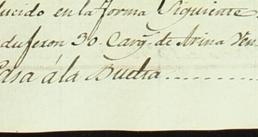 ducido en la forma Siguiente
dujeron 30 Carg.s de Arina Ven
Pasa á la Buelta